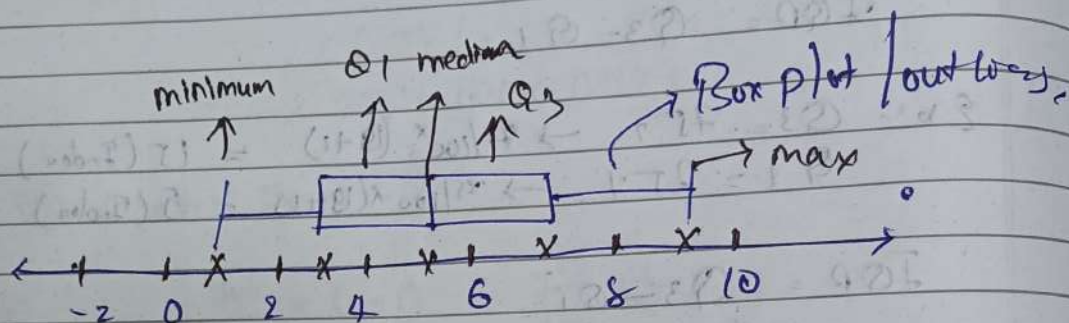 minimum Q1 median Q3 Box plot / outliers.
max
-2 0 2 4 6 8 10